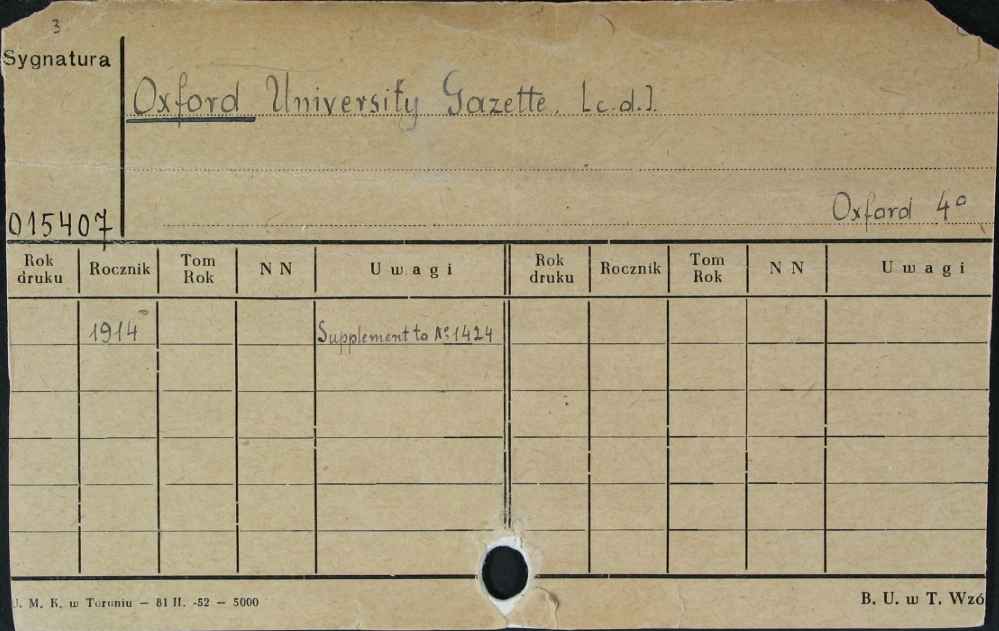 3
Sygnatura
Oxford University Gazette. [c.d.].
Oxford 4°
015407
Rok druku Rocznik Tom Rok N N Uwagi Rok druku Rocznik Tom Rok N N Uwagi
1914 Supplement to No 1424
U. M. K. w Toruniu — 81 II. -52 — 5000
B. U. w T. Wzó